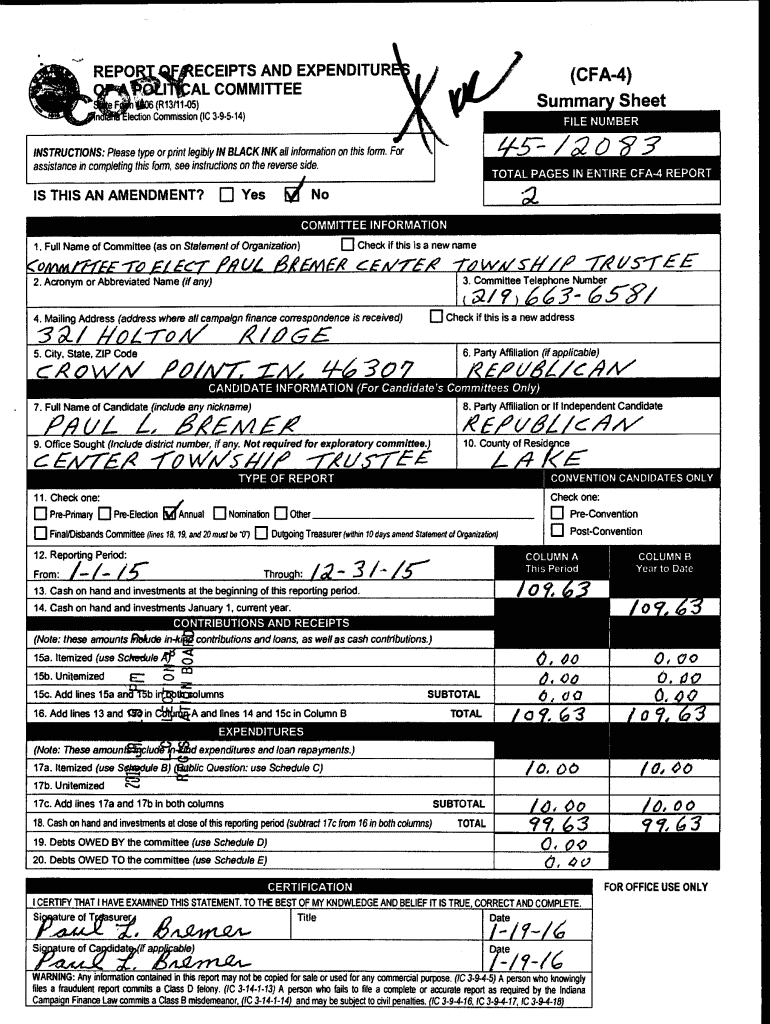 REPORT OF RECEIPTS AND EXPENDITURES
OF A POLITICAL COMMITTEE
State Form 4606 (R13/11-05)
Indiana Election Commission (IC 3-9-5-14)
COPY
(CFA-4)
Summary Sheet
FILE NUMBER
45-12083
INSTRUCTIONS: Please type or print legibly IN BLACK INK all information on this form. For
assistance in completing this form, see instructions on the reverse side.
TOTAL PAGES IN ENTIRE CFA-4 REPORT
2
IS THIS AN AMENDMENT? Yes No
COMMITTEE INFORMATION
1. Full Name of Committee (as on Statement of Organization) Check if this is a new name
COMMITTEE TO ELECT PAUL BREMER CENTER TOWNSHIP TRUSTEE
2. Acronym or Abbreviated Name (if any) 3. Committee Telephone Number
(219) 663-6581
4. Mailing Address (address where all campaign finance correspondence is received) Check if this is a new address
321 HOLTON RIDGE
5. City, State, ZIP Code 6. Party Affiliation (if applicable)
CROWN POINT, IN, 46307 REPUBLICAN
CANDIDATE INFORMATION (For Candidate's Committees Only)
7. Full Name of Candidate (include any nickname) 8. Party Affiliation or If Independent Candidate
PAUL L. BREMER REPUBLICAN
9. Office Sought (Include district number, if any. Not required for exploratory committee.) 10. County of Residence
CENTER TOWNSHIP TRUSTEE LAKE
TYPE OF REPORT CONVENTION CANDIDATES ONLY
11. Check one: Check one:
Pre-Primary Pre-Election Annual Nomination Other Pre-Convention
Final/Disbands Committee (lines 18, 19, and 20 must be "0") Outgoing Treasurer (within 10 days amend Statement of Organization) Post-Convention
12. Reporting Period: COLUMN A COLUMN B
From: 1-1-15 Through: 12-31-15 This Period Year to Date
13. Cash on hand and investments at the beginning of this reporting period. 109.63
14. Cash on hand and investments January 1, current year. 109.63
CONTRIBUTIONS AND RECEIPTS
(Note: these amounts include in-kind contributions and loans, as well as cash contributions.)
15a. Itemized (use Schedule A) 0.00 0.00
15b. Unitemized 0.00 0.00
15c. Add lines 15a and 15b in both columns SUBTOTAL 0.00 0.00
16. Add lines 13 and 15c in Column A and lines 14 and 15c in Column B TOTAL 109.63 109.63
EXPENDITURES
(Note: These amounts include in-kind expenditures and loan repayments.)
17a. Itemized (use Schedule B) (Public Question: use Schedule C) 10.00 10.00
17b. Unitemized
17c. Add lines 17a and 17b in both columns SUBTOTAL 10.00 10.00
18. Cash on hand and investments at close of this reporting period (subtract 17c from 16 in both columns) TOTAL 99.63 99.63
19. Debts OWED BY the committee (use Schedule D) 0.00
20. Debts OWED TO the committee (use Schedule E) 0.00
CERTIFICATION FOR OFFICE USE ONLY
I CERTIFY THAT I HAVE EXAMINED THIS STATEMENT. TO THE BEST OF MY KNOWLEDGE AND BELIEF IT IS TRUE, CORRECT AND COMPLETE.
Signature of Treasurer Title Date
Paul L. Bremer 1-19-16
Signature of Candidate (if applicable) Date
Paul L. Bremer 1-19-16
WARNING: Any information contained in this report may not be copied for sale or used for any commercial purpose. (IC 3-9-4-5) A person who knowingly
files a fraudulent report commits a Class D felony. (IC 3-14-1-13) A person who fails to file a complete or accurate report as required by the Indiana
Campaign Finance Law commits a Class B misdemeanor, (IC 3-14-1-14) and may be subject to civil penalties. (IC 3-9-4-16, IC 3-9-4-17, IC 3-9-4-18)